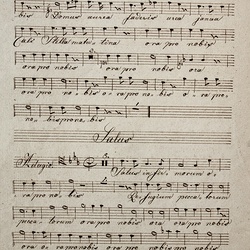 bis Domus aurea faederis arca janua
Caeli Stella matutina ora pro nobis
ora pro nobis ora
ora pro nobis ora pro nobis ora pro
nobis pro nobis
Salus
Adagio Salus infirmorum o
ra pro nobis Refugium pecca-
torum ora pro nobis ora pro nobis
ora pro nobis ora pro nobis